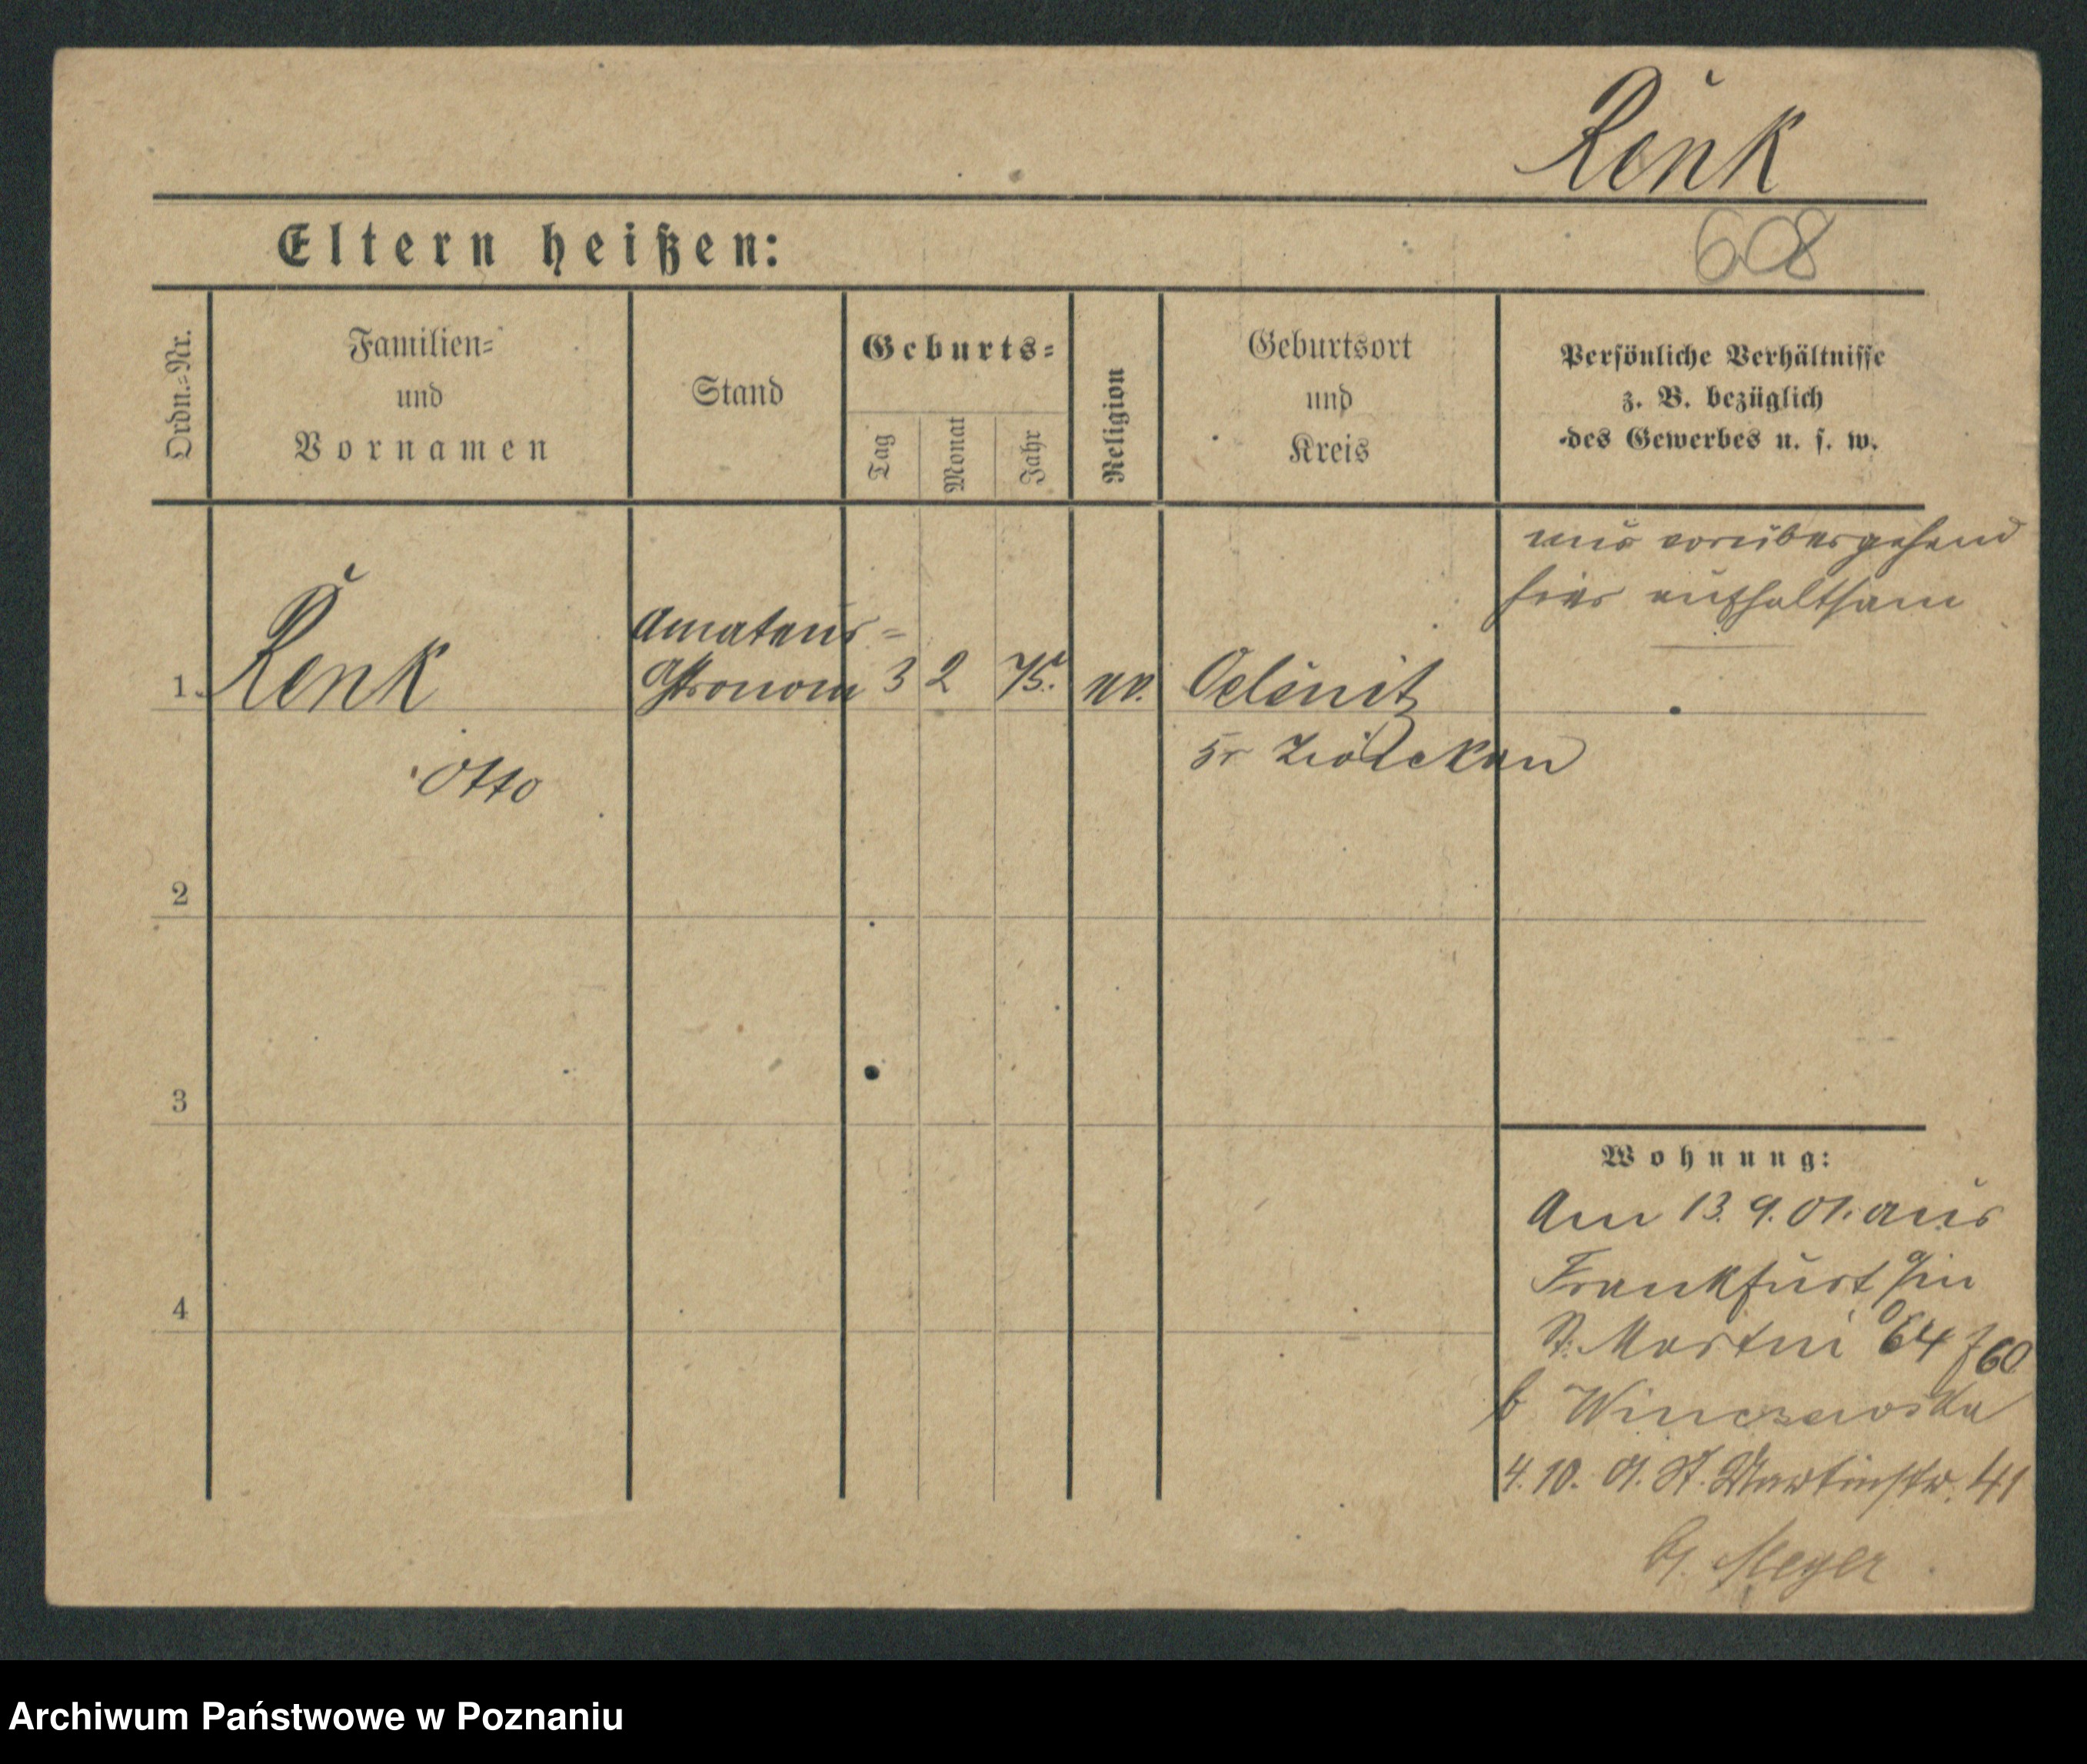 Renk
608
Eltern heißen:
Ordn.=Nr.
Familien=
und
Vornamen
Stand
Geburts=
Tag
Monat
Jahr
Religion
Geburtsort
und
Kreis
Persönliche Verhältnisse
z. B. bezüglich
des Gewerbes u. s. w.
nur vorübergehend
hier aufhaltsam
1. Renk
Amateur=
Astronom 3 2 75. ev. Oelsnitz
Otto
Kr Zwickau
2
3
4
Wohnung:
Am 13. 9. 01. aus
Frankfurt a/m
St. Martin 64
b Winczewska
4. 10. 01. St. Martinstr. 41
b/. Meyer
Archiwum Państwowe w Poznaniu